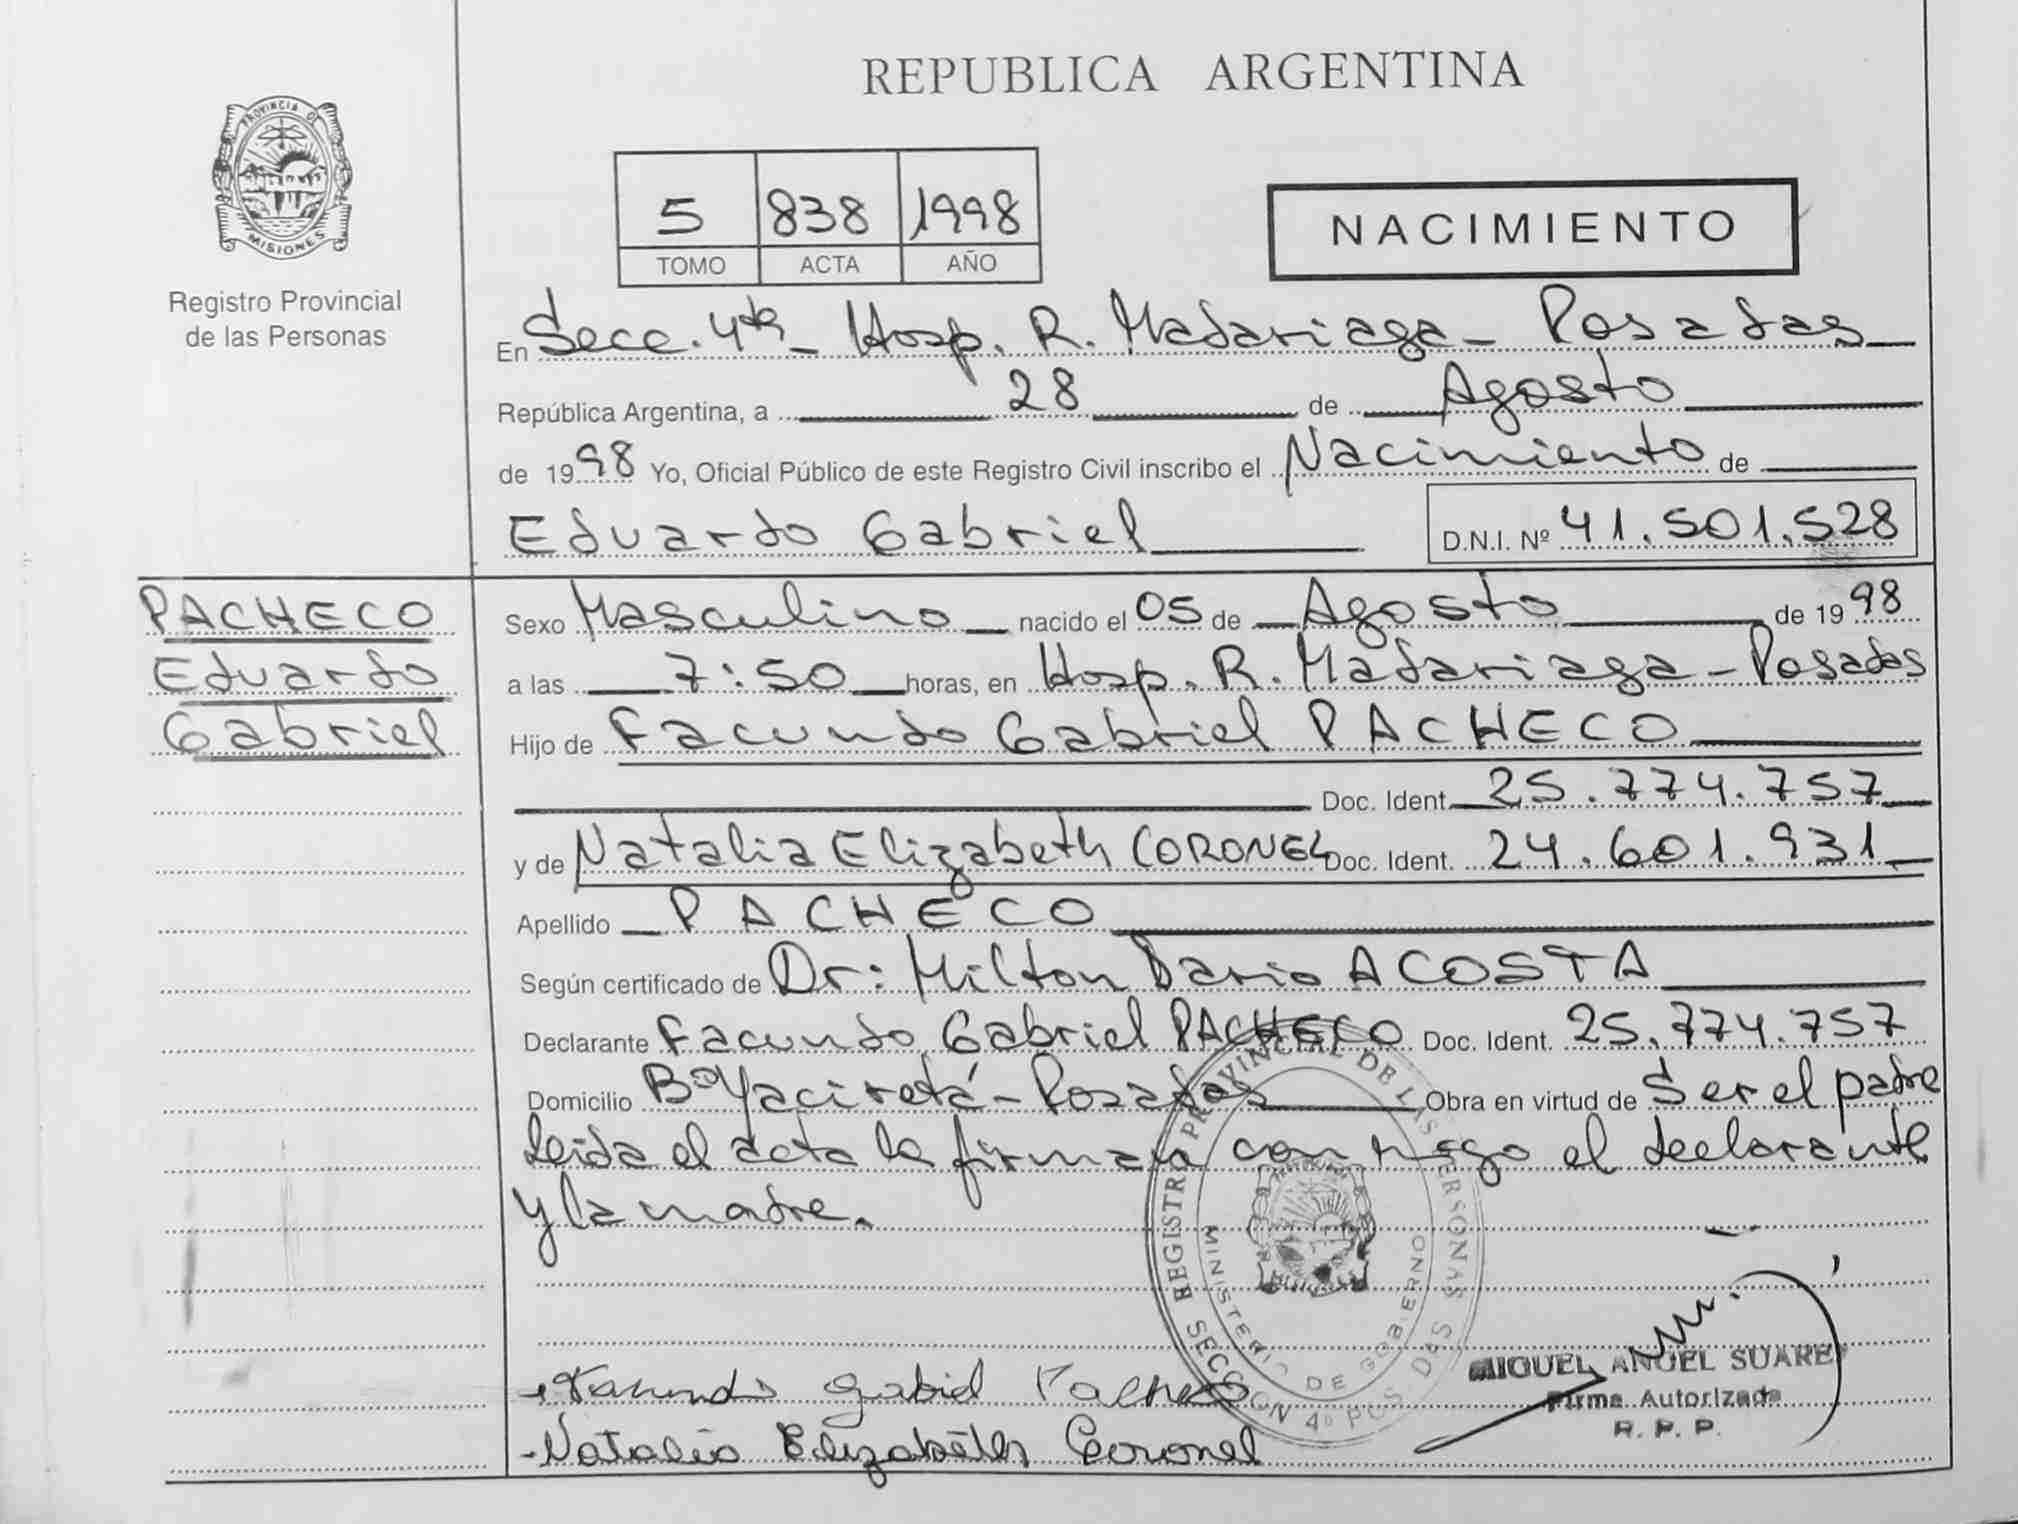 REPUBLICA ARGENTINA
PROVINCIA DE
MISIONES
Registro Provincial
de las Personas
5 838 1998
TOMO ACTA AÑO
NACIMIENTO
En Secc. 4ta - Hosp. R. Madariaga - Posadas
República Argentina, a 28 de Agosto
de 1998 Yo, Oficial Público de este Registro Civil inscribo el Nacimiento de
Eduardo Gabriel D.N.I. Nº 41.501.528
PACHECO
Eduardo
Gabriel
Sexo Masculino nacido el 05 de Agosto de 1998
a las 7:50 horas, en Hosp. R. Madariaga - Posadas
Hijo de Facundo Gabriel PACHECO
Doc. Ident. 25.774.757
y de Natalia Elizabeth CORONEL Doc. Ident. 24.601.931
Apellido PACHECO
Según certificado de Dr: Milton Dario ACOSTA
Declarante Facundo Gabriel PACHECO Doc. Ident. 25.774.757
Domicilio Bº Yaciretá - Posadas Obra en virtud de Ser el padre
Leida el acta la firman conmigo el declarante
y la madre.
REGISTRO PROVINCIAL DE LAS PERSONAS
MINISTERIO DE GOBIERNO
SECCION 4º
Facundo Gabriel Pacheco
Natalia Elizabeth Coronel
MIGUEL ANGEL SUAREZ
Firma Autorizada
R. P. P.